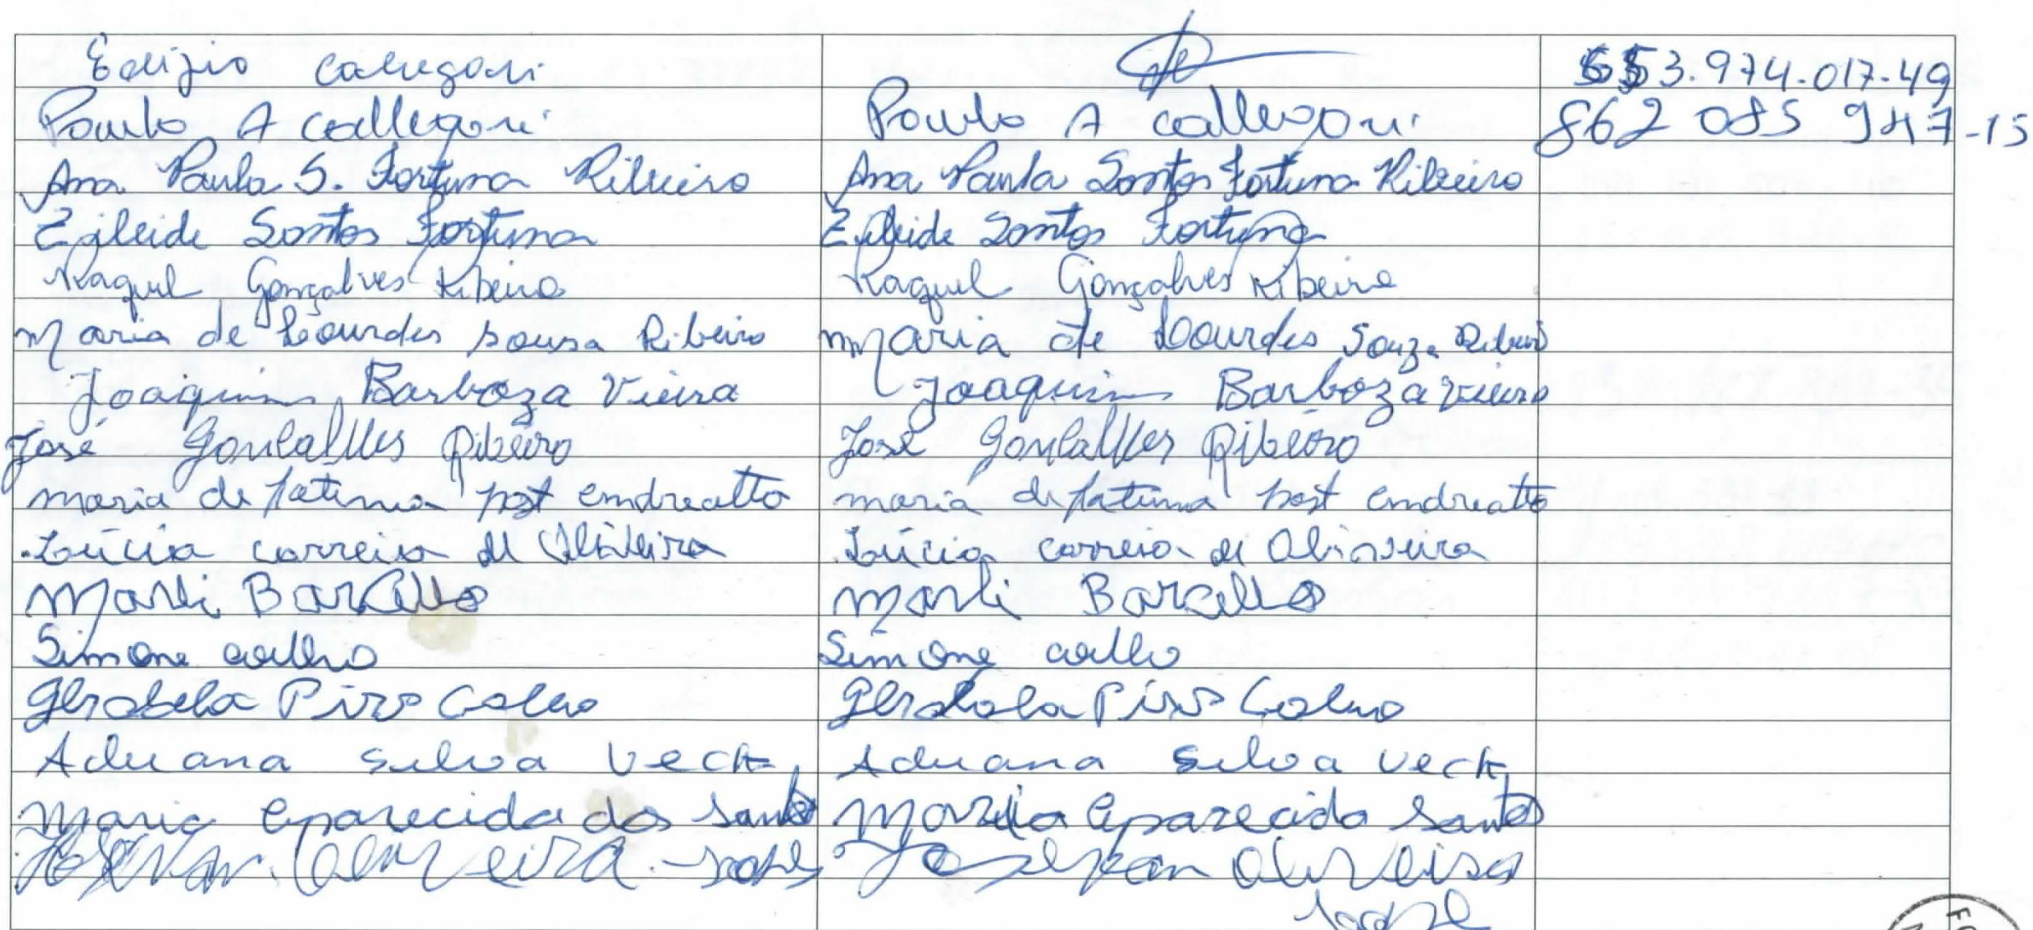 Edizio Calegari 653.974.017-49
Paulo A callegari Paulo A callegari 862 085 947-15
Ana Paula S. Fortuna Ribeiro Ana Paula Santos Fortuna Ribeiro
Egleide Santos Fortuna Egleide Santos Fortuna
Raquel Gonçalves Ribeiro Raquel Gonçalves Ribeiro
Maria de Lourdes sousa Ribeiro Maria de Lourdes Souza Ribeiro
Joaquim Barboza Vieira Joaquim Barboza Vieira
José Gonçalves Ribeiro José Gonçalves Ribeiro
maria de fatima post endreatto maria de fatima post endreatto
Lúcia correia de Oliveira Lúcia correia de
Marli Barcellos Marli Barcellos
Simone coelho Simone coelho
Pires Coelho Pires Coelho
Adriana Silva Veck Adriana Silva Veck
Maria Aparecida dos Santos Aparecida Santos
Oliveira Oliveira